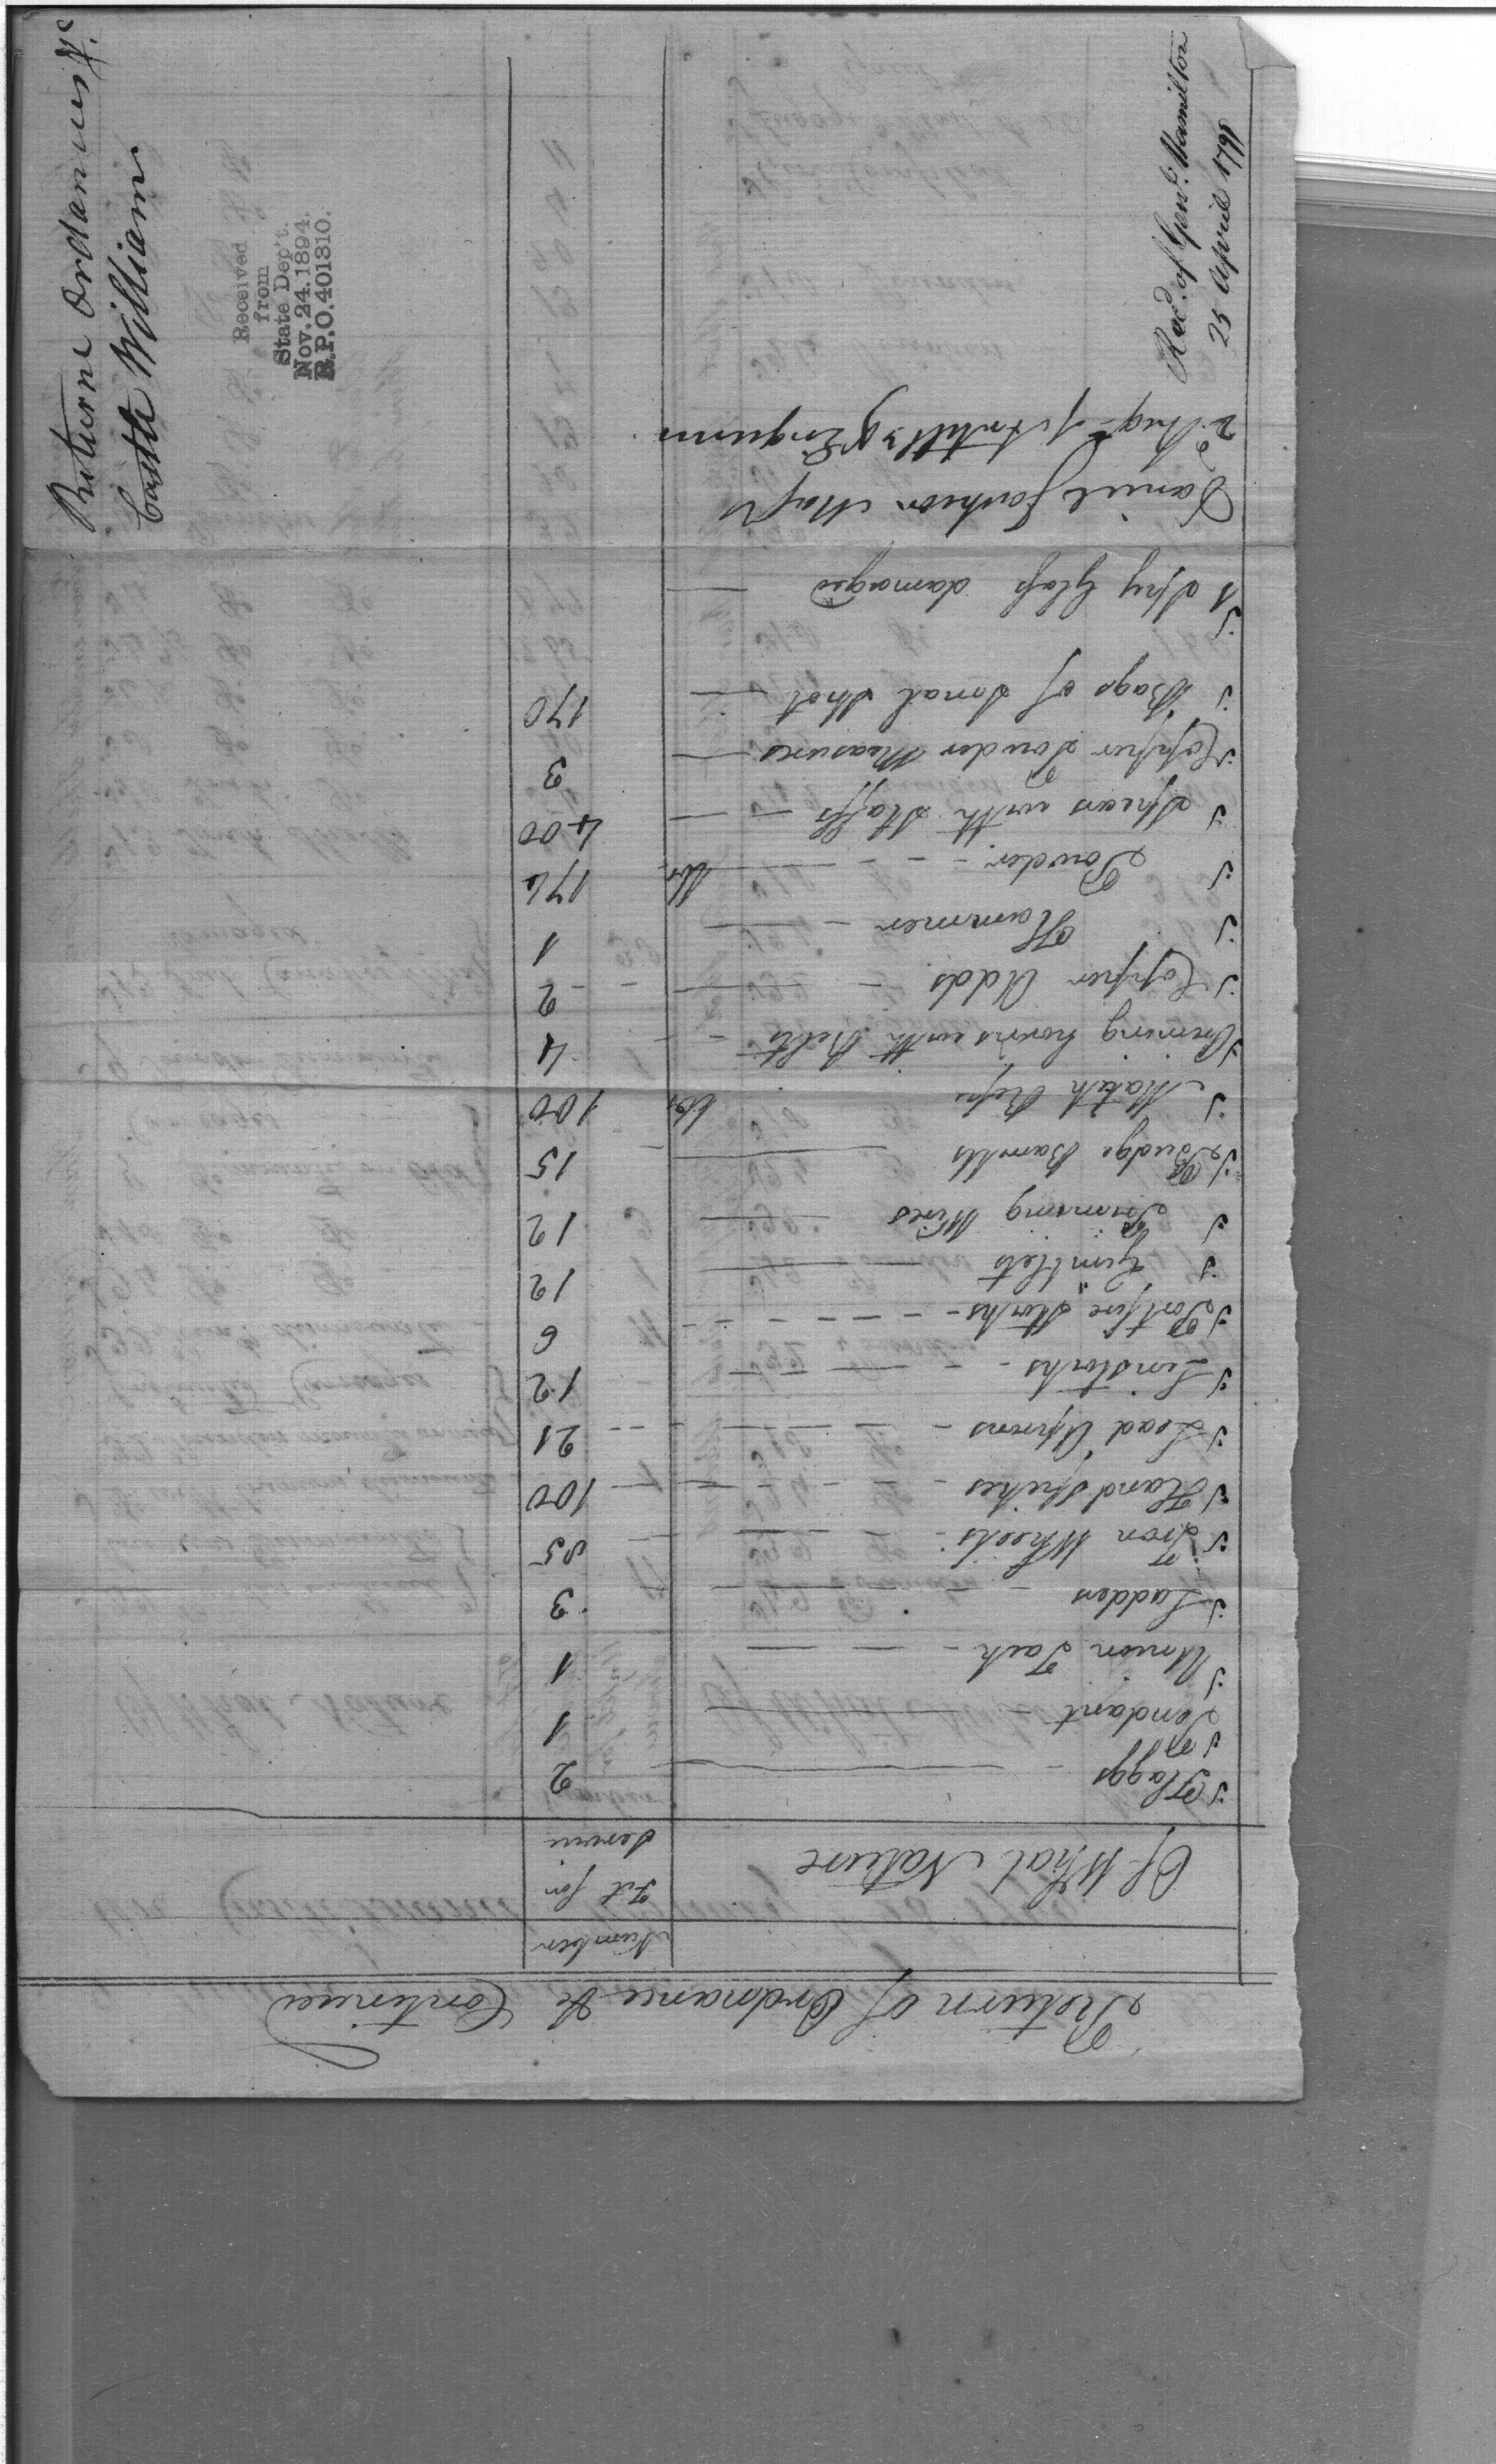 Return of Ordnance &c Continued
Of What Nature
Number
Fit for
Service
Flaggs 2
Pendant 1
Union Jack 1
Ladders 3
Iron Wheels 85
Hand Spikes 100
Lead Aprons 21
Linstocks 12
Portfire Stocks 6
Gimblets 12
Priming Wires 12
Budge Barrells 15
Match Rope lbs 100
Priming horns with Belts 4
Copper Adds 2
Hammer 1
Powder lbs 174
Spears with Staffs 400
Copper Powder Measures 3
Bags of Smal Shot 170
1 Spy Glass damaged
Daniel Jackson Majr
2d Regt of Artilly & Engineers
Recd. of Genl. Hamilton
25 April 1799
Return Ordannces &c
Castle William
Received
from
State Dep't.
Nov. 24. 1894.
R.P.O. 401310.